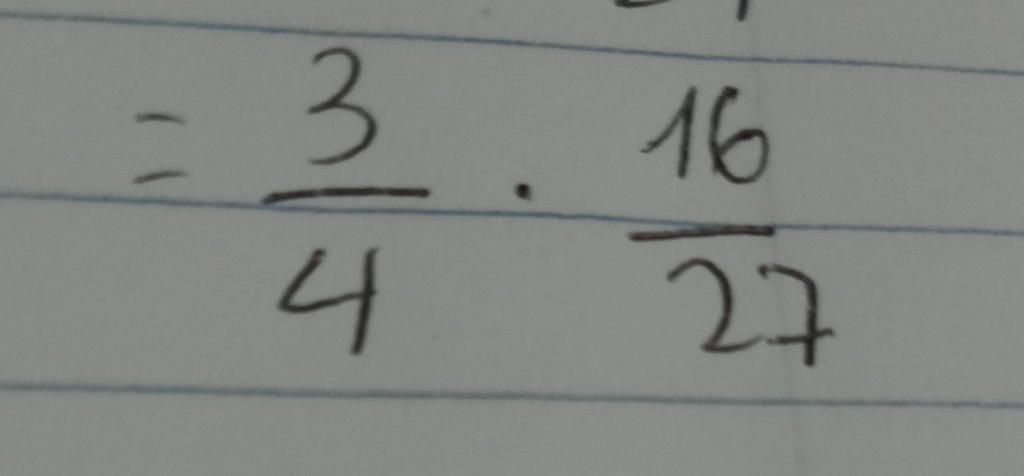 = 3/4 · 16/27